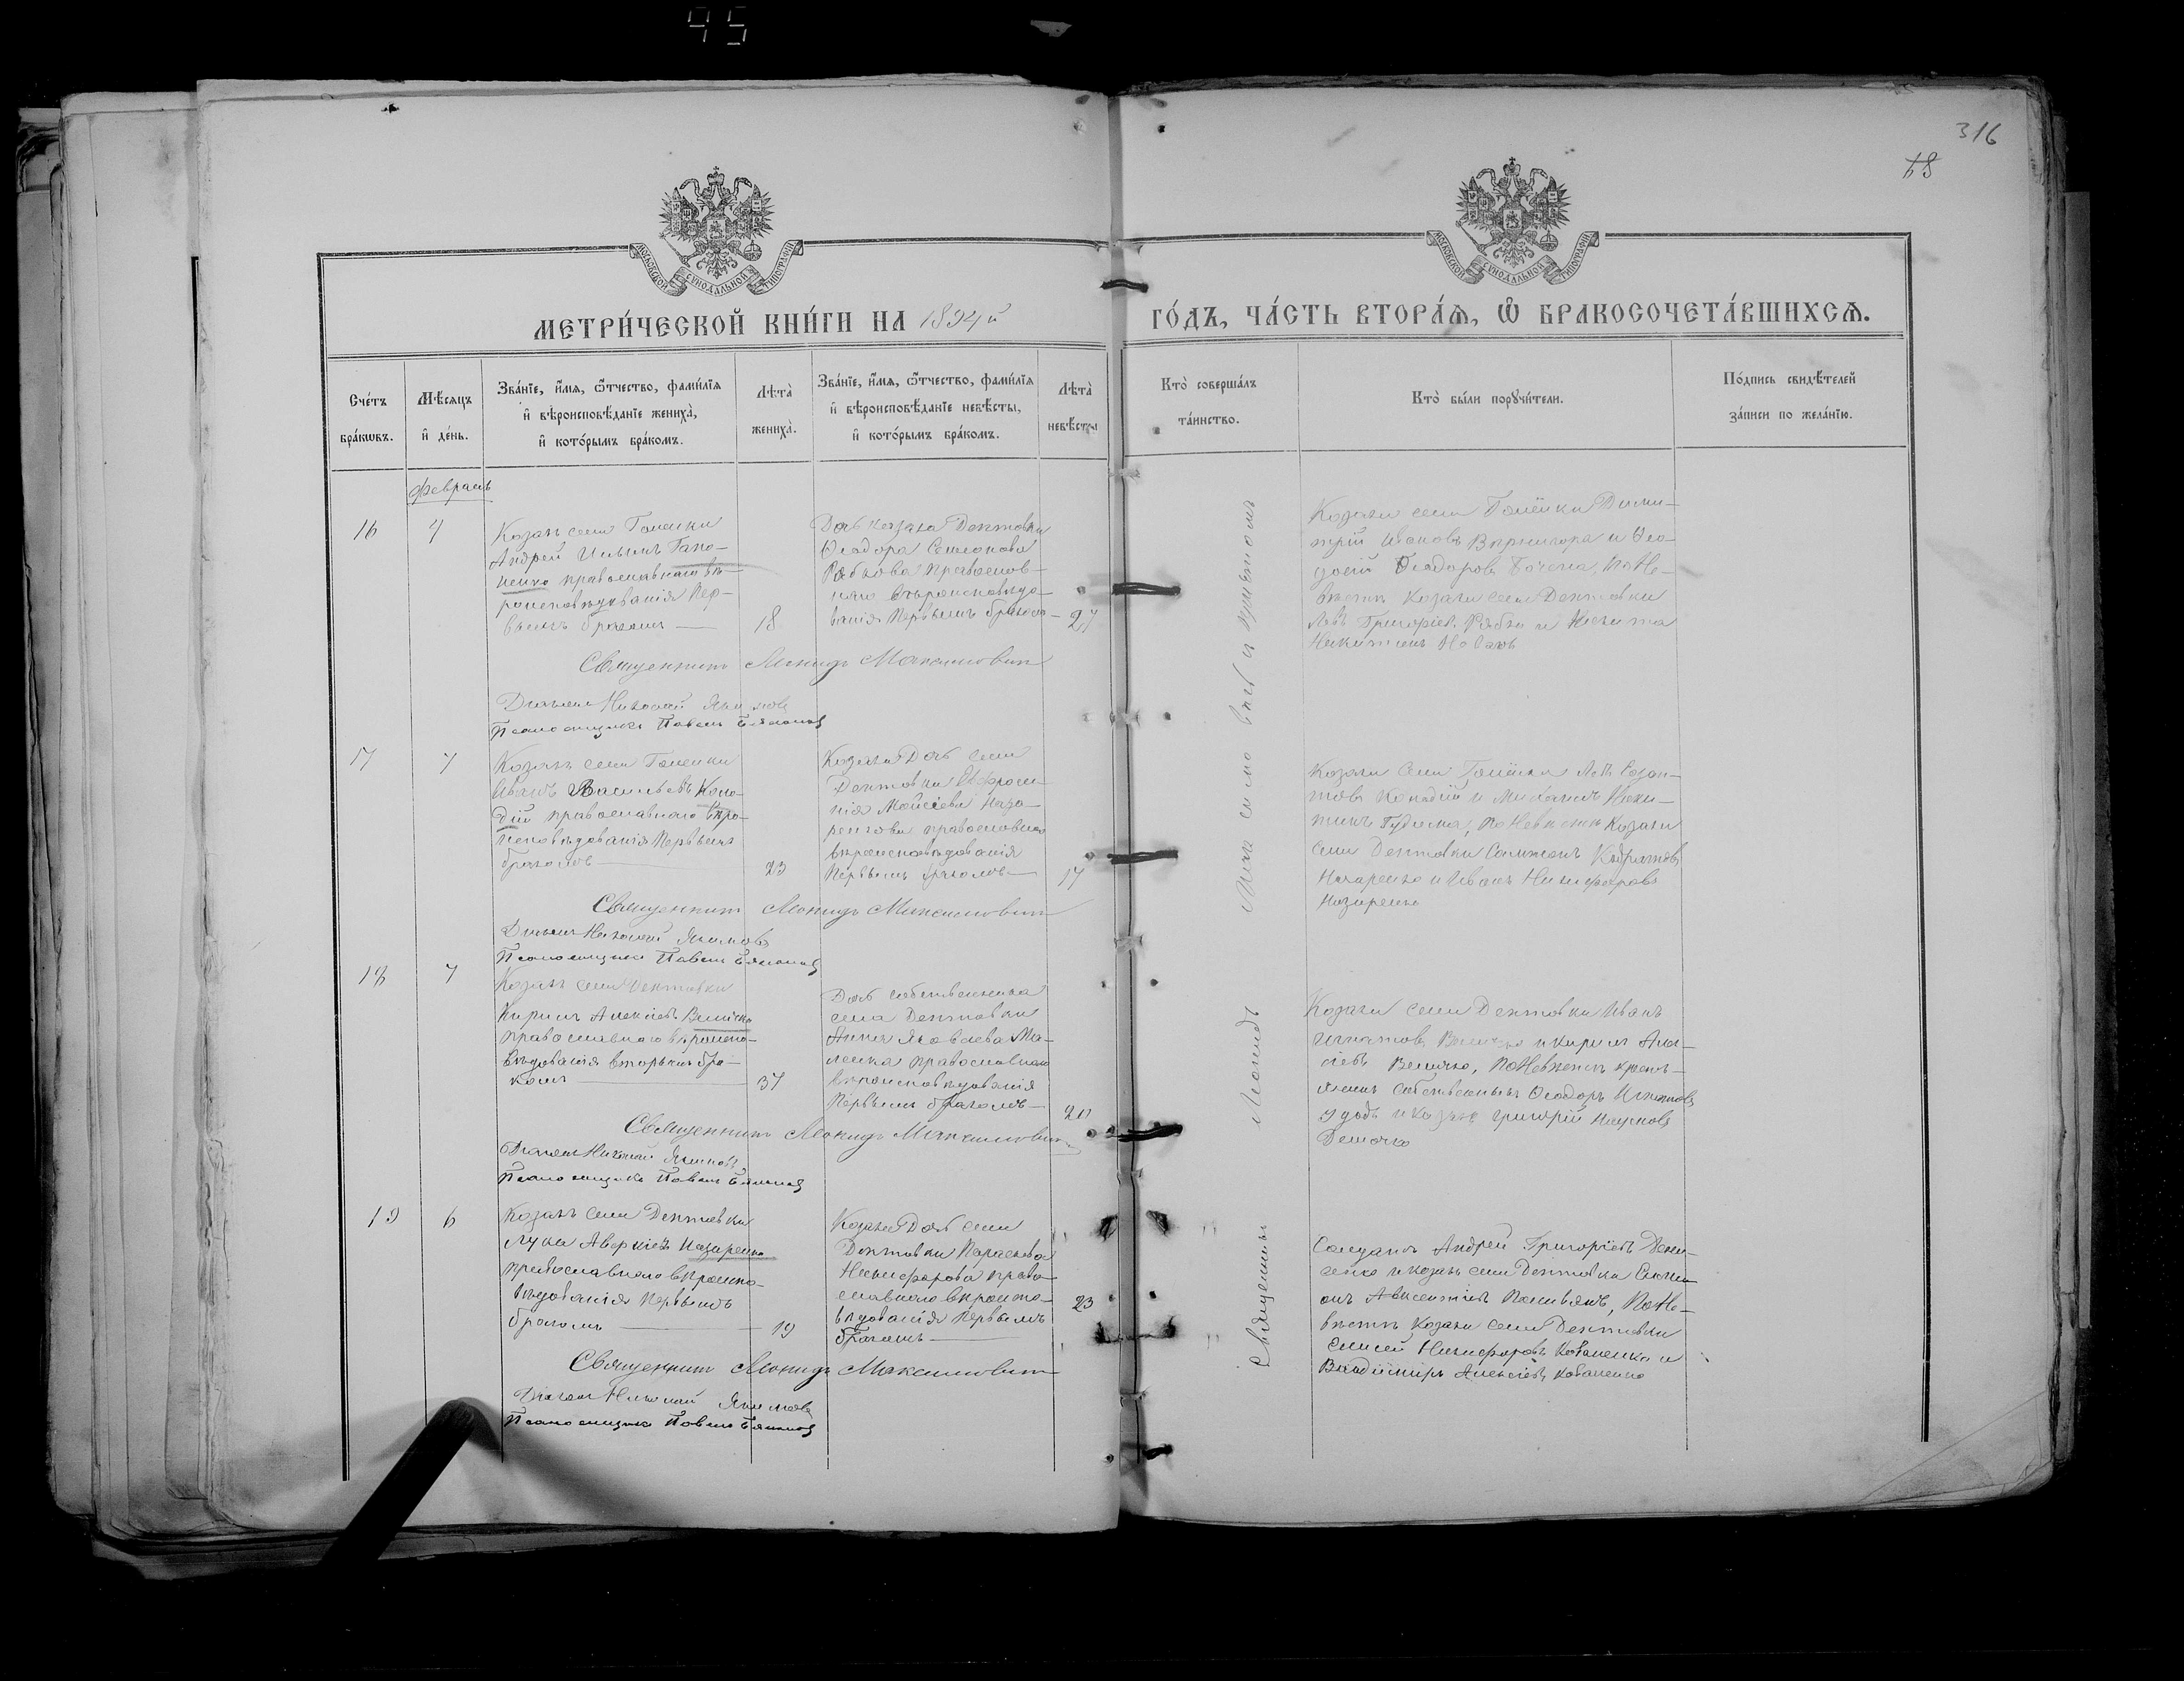 45
316
18
МОСКОВСКОЙ СѴНОДАЛЬНОЙ ТИПОГРАФІИ
МОСКОВСКОЙ СѴНОДАЛЬНОЙ ТИПОГРАФІИ
МЕТРИ́ЧЕСКОЙ КНИ́ГИ НА 1894й
ГО́ДЪ, ЧА́СТЬ ВТОРА́Ѧ, Ѡ҆ БРАКОСОЧЕТА́ВШИХСѦ.
Сче́тъ
бра́кѡвъ.
Мѣ́сѧцъ
и҆ де́нь.
Зва́нїе, и҆́мѧ, ѻ҆́тчество, фами́лїѧ
и҆ вѣроисповѣ́данїе жениха̀,
и҆ кото́рымъ бра́комъ.
Лѣта̀
жениха̀.
Зва́нїе, и҆́мѧ, ѻ҆́тчество, фами́лїѧ
и҆ вѣроисповѣ́данїе невѣ́сты,
и҆ кото́рымъ бра́комъ.
Лѣта̀
невѣ́сты
Кто̀ соверша́лъ
та́инство.
Кто̀ бы́ли порꙋчи́тели.
По́дпись свидѣ́телей
за́писи по жела́нїю.
Февраль
16
4
Козакъ села
Андрей Ильинъ Гапо-
ненко православнаго вѣ-
роисповѣдованія Пер-
вымъ бракомъ
18
Дочь козака Дептовки
Ѳеодора Семіонова
Рябкова Православ-
наго вѣроисповѣдо-
ванія Первымъ бракомъ
27
Козаки села Дими-
трій Ивановъ и Ѳео-
Ѳеодоровъ По Не-
вѣстѣ Козаки села Дептовки
Левъ Григоріев. Рябко и Никита
Никитинъ Новакъ
Священникъ Леонидъ Максимовичъ
Діаконъ Николай Якимовъ
Псаломщикъ Павелъ
17
7
Козакъ села
Иванъ Васильевъ Коно-
дій православнаго вѣро-
исповѣдованія Первымъ
бракомъ
23
Козачка Дочь села
Дептовки Евфроси-
нія Мойсіева Наза-
ренкова православнаго
вѣроисповѣдованія
Первымъ бракомъ
17
Козаки села
Конодій и Михаилъ Ники-
тинъ Гудима, По Невѣстѣ Козаки
села Дептовки
Назаренко и Иванъ Никифоровъ
Назаренко
Священникъ Леонидъ Максимовичъ
Діаконъ Николай Якимовъ
Псаломщикъ Павелъ
18
7
Козакъ села Дептовки
Кирилъ Алексіевъ Величко
православнаго вѣроиспо-
вѣдованія вторымъ бра-
комъ
37
Дочь собственника
села Дептовки
Анна Яковлева Ма-
ленка православнаго
вѣроисповѣдованія
Первымъ бракомъ
20
Козаки села Дептовки Иванъ
Игнатовъ Величко и Кирилъ Але-
сіевъ Величко, По Невѣстѣ крест-
янинъ собственникъ Ѳеодоръ Игнатовъ
Удодъ и козакъ Григорій Наумовъ
Священникъ Леонидъ Максимовичъ
Діаконъ Николай Якимовъ
Псаломщикъ Павелъ
19
6
Козакъ села Дептовки
Лука Аверкіевъ Назаренко
православнаго вѣроиспо-
вѣдованія Первымъ
бракомъ
19
Козачка Дочь села
Дептовки Параскева
Никифорова право-
славнаго вѣроиспо-
вѣдованія Первымъ
бракомъ
23
Солдатъ Андрей Григоріевъ Дени-
сенко и козакъ села Дептовки Симе-
онъ Авксентіевъ По Не-
вѣстѣ Козаки села Дептовки
Никифоровъ Коваленко и
Владиміръ Алексіевъ Коваленко
Священникъ Леонидъ Максимовичъ
Діаконъ Николай Якимовъ
Псаломщикъ Павелъ
Священникъ Леонидъ